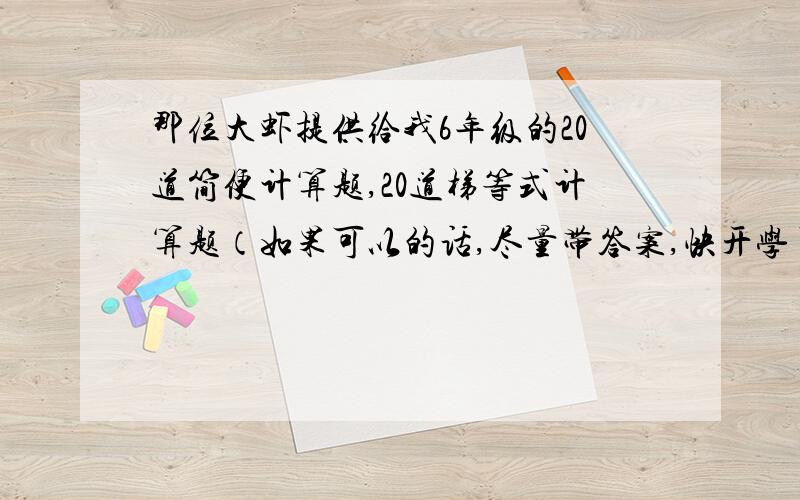 那位大虾提供给我6年级的20
道简便计算题,20道梯等式计
算题（如果可以的话,尽量带答案,快开学